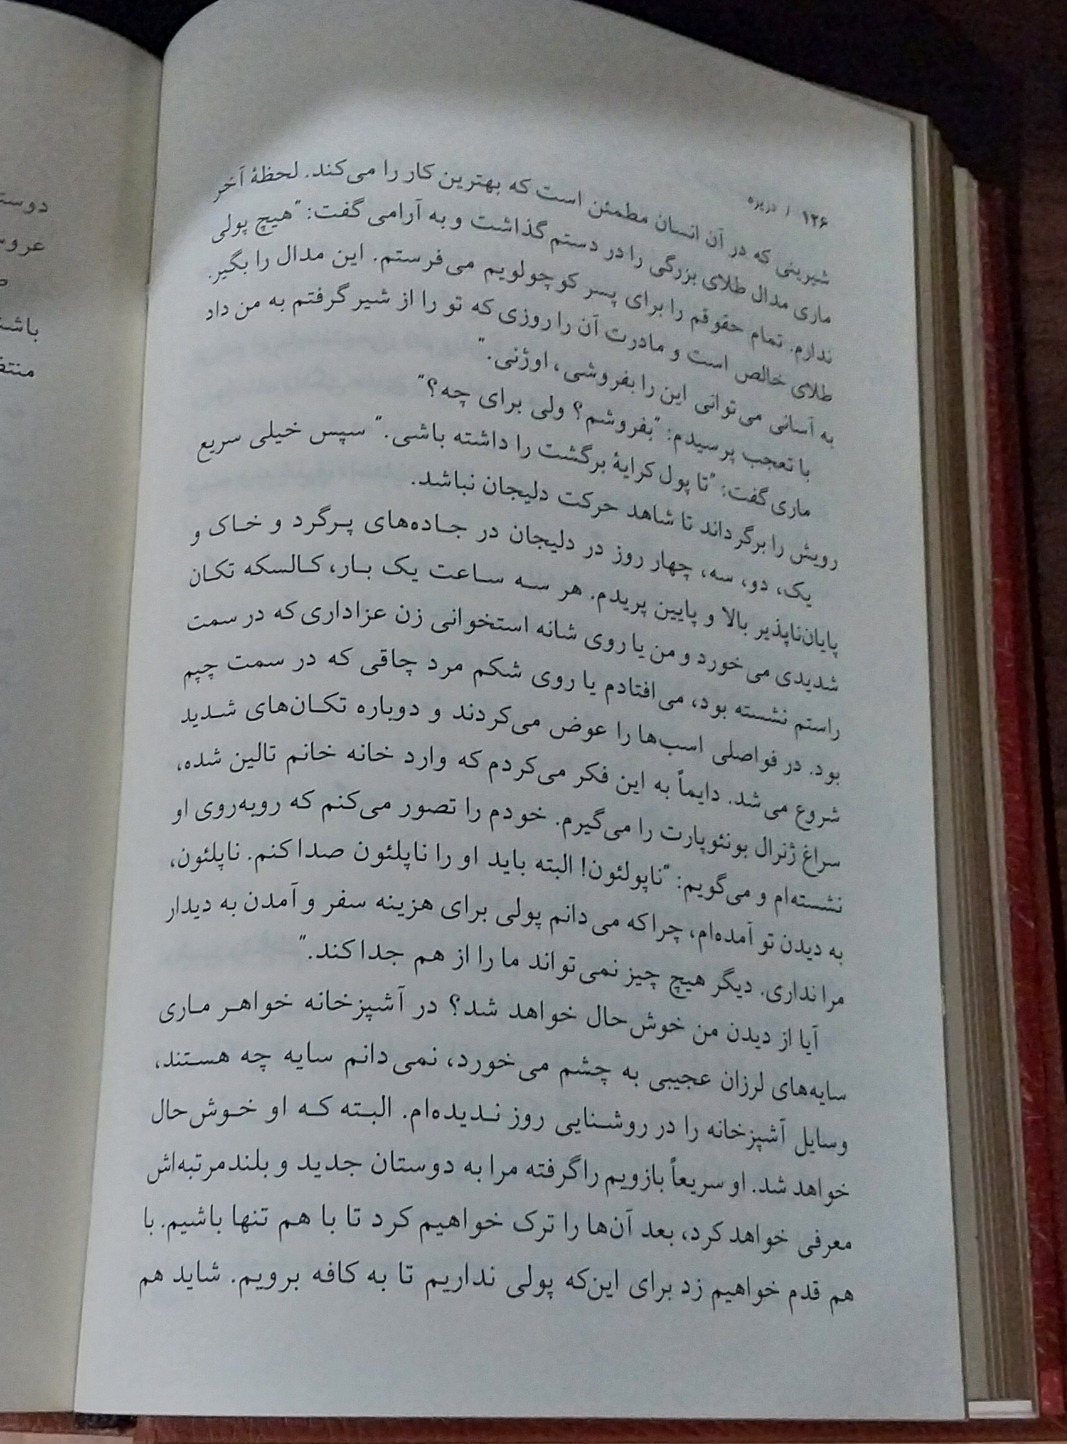 ۱۲۶ / دزیره
شیرینی که در آن انسان مطمئن است که بهترین کار را می‌کند. لحظهٔ آخر
ماری مدال طلای بزرگی را در دستم گذاشت و به آرامی گفت: "هیچ پولی
ندارم. تمام حقوقم را برای پسر کوچولویم می‌فرستم. این مدال را بگیر.
طلای خالص است و مادرت آن را روزی که تو را از شیر گرفتم به من داد
به آسانی می‌توانی این را بفروشی، اوژنی."
با تعجب پرسیدم: "بفروشم؟ ولی برای چه؟"
ماری گفت: "تا پول کرایهٔ برگشت را داشته باشی." سپس خیلی سریع
رویش را برگرداند تا شاهد حرکت دلیجان نباشد.
یک، دو، سه، چهار روز در دلیجان در جاده‌های پرگرد و خاک و
پایان‌ناپذیر بالا و پایین پریدم. هر سه ساعت یک بار، کالسکه تکان
شدیدی می‌خورد و من یا روی شانه استخوانی زن عزاداری که در سمت
راستم نشسته بود، می‌افتادم یا روی شکم مرد چاقی که در سمت چپم
بود. در فواصلی اسب‌ها را عوض می‌کردند و دوباره تکان‌های شدید
شروع می‌شد. دایماً به این فکر می‌کردم که وارد خانه خانم تالین شده،
سراغ ژنرال بونئوپارت را می‌گیرم. خودم را تصور می‌کنم که روبه‌روی او
نشسته‌ام و می‌گویم: "ناپولئون! البته باید او را ناپلئون صدا کنم. ناپلئون،
به دیدن تو آمده‌ام، چراکه می‌دانم پولی برای هزینه سفر و آمدن به دیدار
مرا نداری. دیگر هیچ چیز نمی‌تواند ما را از هم جدا کند."
آیا از دیدن من خوش‌حال خواهد شد؟ در آشپزخانه خواهر ماری
سایه‌های لرزان عجیبی به چشم می‌خورد، نمی‌دانم سایه چه هستند،
وسایل آشپزخانه را در روشنایی روز ندیده‌ام. البته که او خوش‌حال
خواهد شد. او سریعاً بازویم را گرفته مرا به دوستان جدید و بلندمرتبه‌اش
معرفی خواهد کرد، بعد آن‌ها را ترک خواهیم کرد تا با هم تنها باشیم. با
هم قدم خواهیم زد برای این‌که پولی نداریم تا به کافه برویم. شاید هم